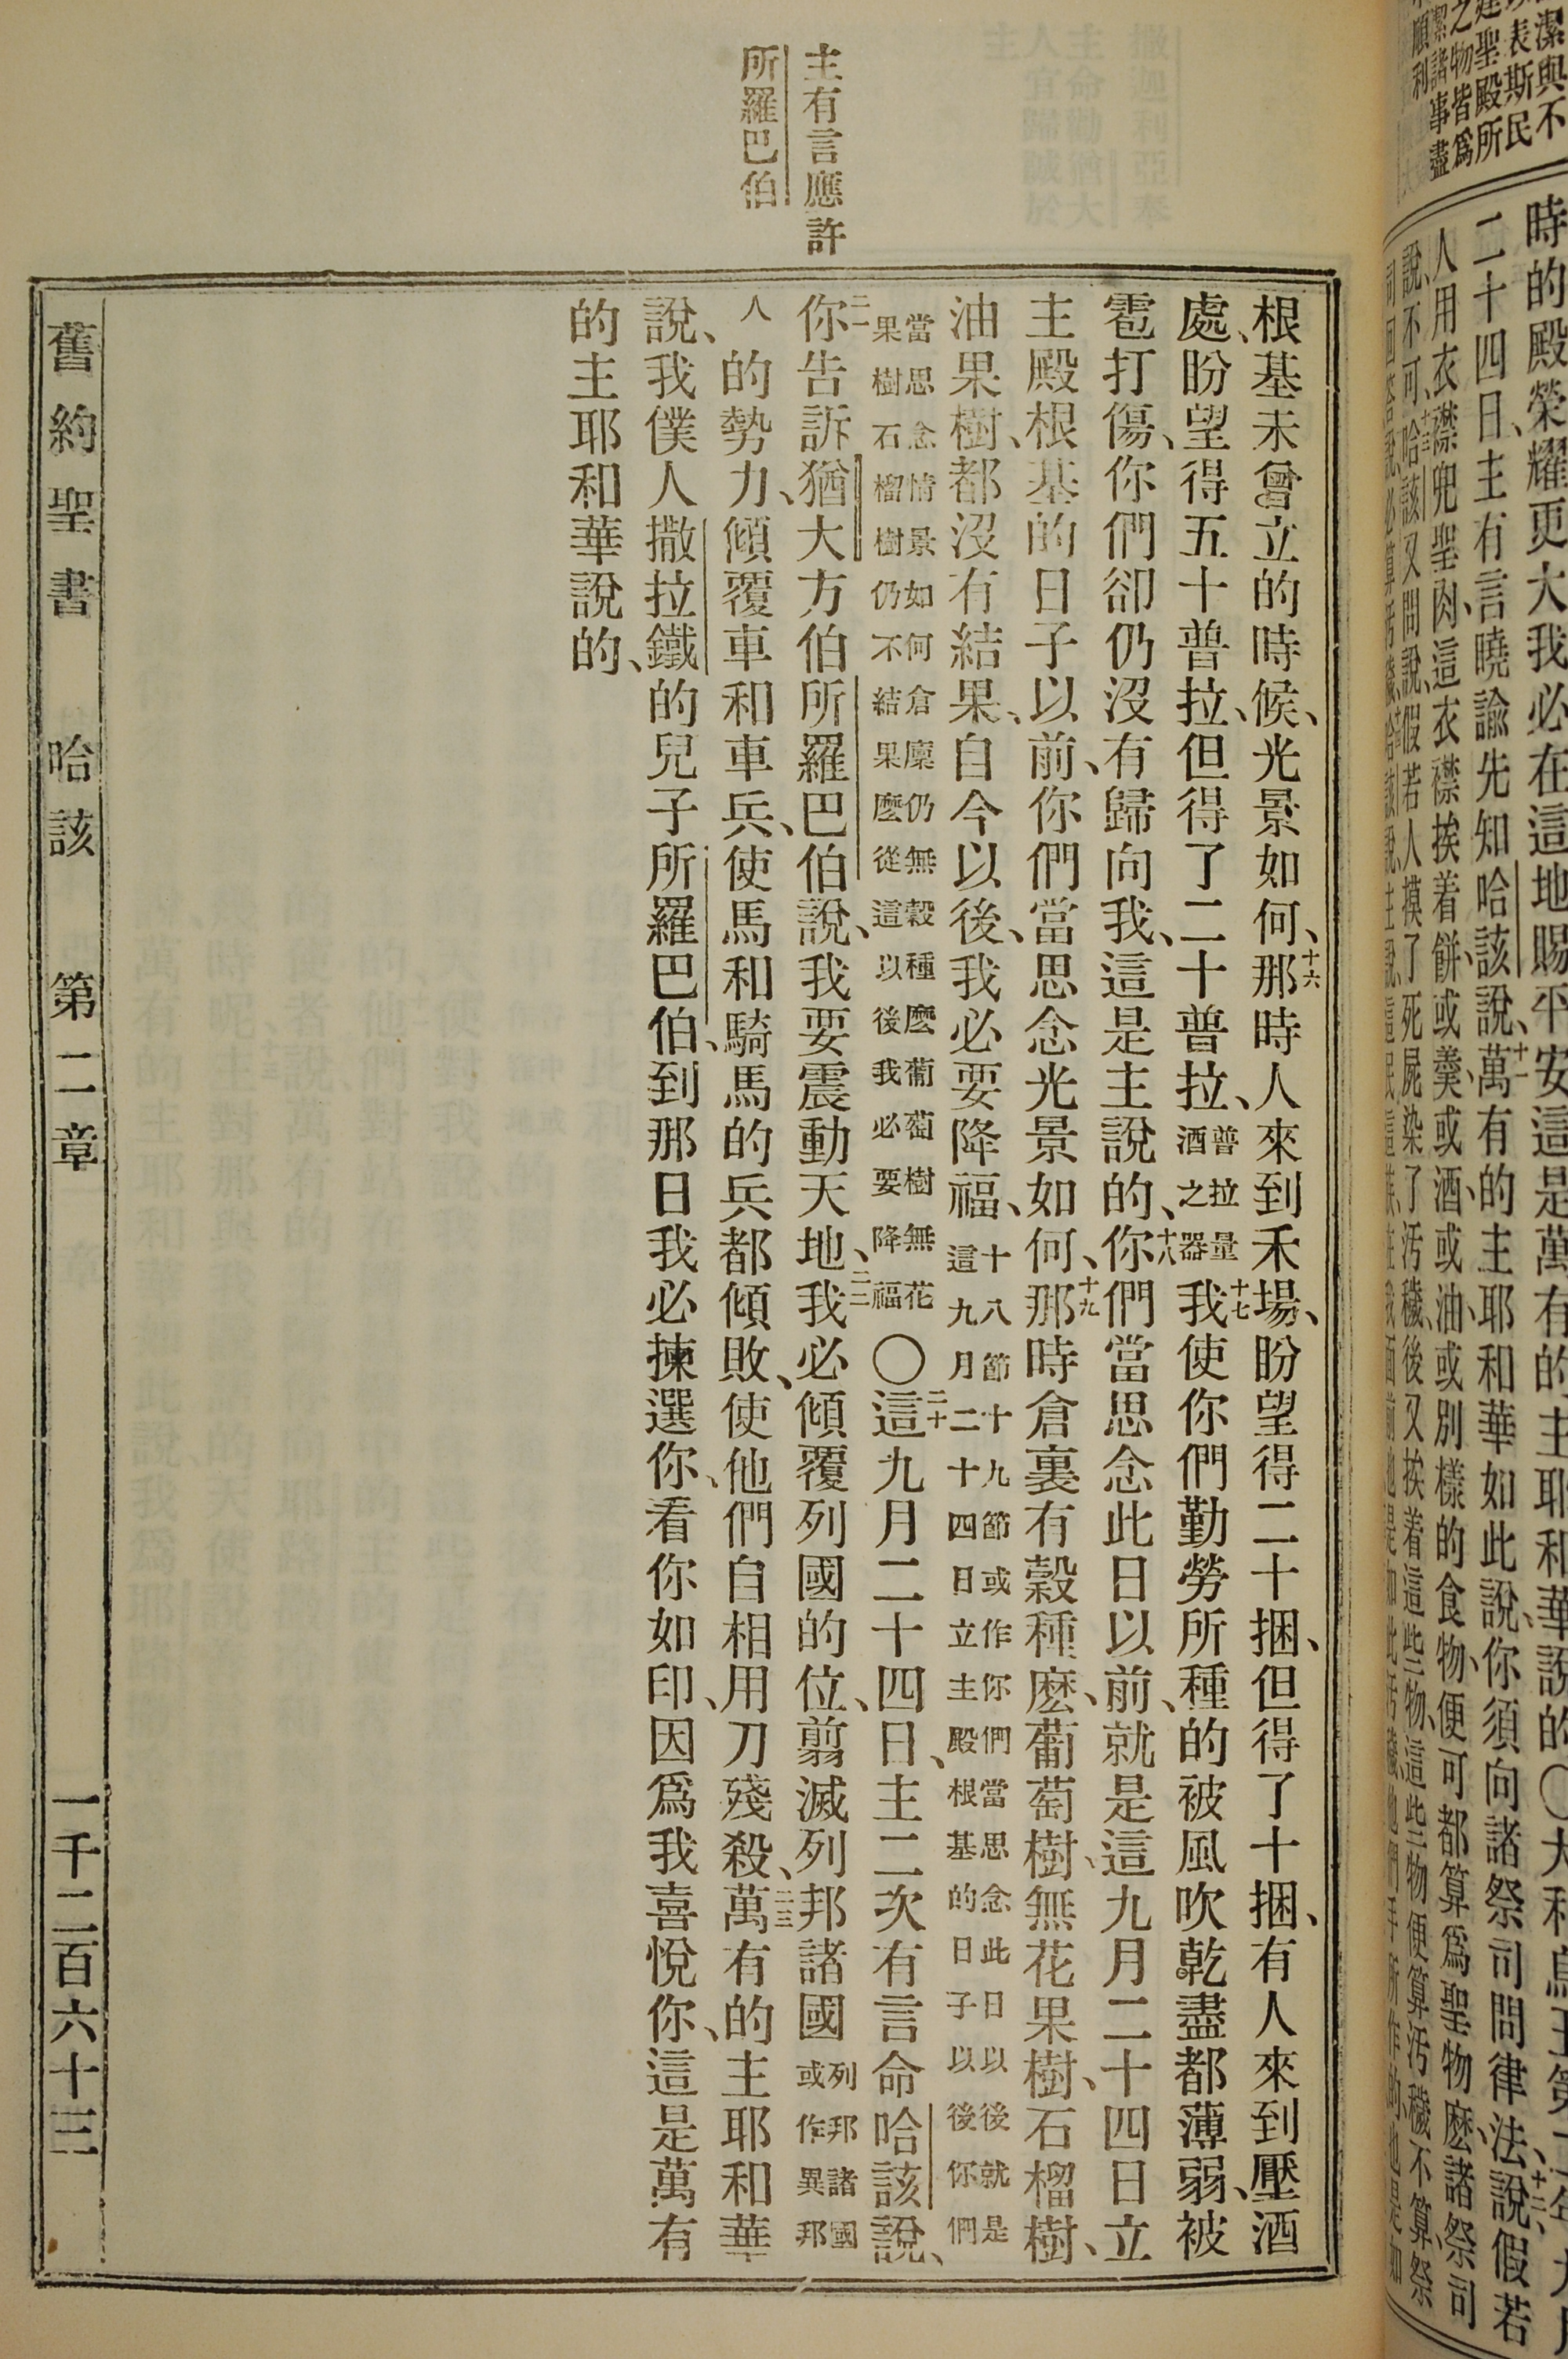 潔與不
表斯民
建聖殿所
之物皆爲
潔諸事盡
順利
時的殿榮耀更大我必在這地賜平安這是萬有的主耶和華說的〇大利烏王第二年九月
二十四日、主有言曉諭先知哈該說、十一萬有的主耶和華如此說、你須向諸祭司問律法、十二說假若
人用衣襟兜聖肉、這衣襟挨着餅、或羹、或酒、或油、或別樣的食物、便可都算爲聖物麽、諸祭司
說、不可、十三哈該又問說、假若人摸了死屍染了汚穢、後又挨着這些物、這些物便算汚穢不算、祭
司回答說、必算汚穢、十四哈該說、主說、這民這族、在我面前也是如此汚穢他們手所作的、也是如
主有言應許
所羅巴伯
根基未曾立的時候、光景如何、十六那時人來到禾場、盼望得二十捆、但得了十捆、有人來到壓酒
處、盼望得五十普拉、但得了二十普拉、普拉量酒之器十七我使你們勤勞所種的被風吹乾盡都薄弱、被
雹打傷、你們卻仍沒有歸向我、這是主說的、十八你們當思念此日以前、就是這九月二十四日立
主殿根基的日子以前、你們當思念光景如何、十九那時倉裏有穀種麽、葡萄樹、無花果樹、石榴樹、
油果樹、都沒有結果、自今以後、我必要降福、十八節十九節或作你們當思念此日以後就是這九月二十四日立主殿根基的日子以後你們
當思念情景如何倉廩仍無穀種麽葡萄樹無花果樹石榴樹仍不結果麽從這以後我必要降福〇二十這九月二十四日、主二次有言命哈該說、
二一你告訴猶大方伯所羅巴伯說、我要震動天地、二二我必傾覆列國的位、翦滅列邦諸國列邦諸國或作異邦
人的勢力、傾覆車和車兵、使馬和騎馬的兵都傾敗、使他們自相用刀殘殺、二三萬有的主耶和華
說、我僕人撒拉鐵的兒子所羅巴伯、到那日我必揀選你、看你如印、因爲我喜悅你、這是萬有
的主耶和華說的、
舊約聖書 哈該 第二章 一千二百六十三